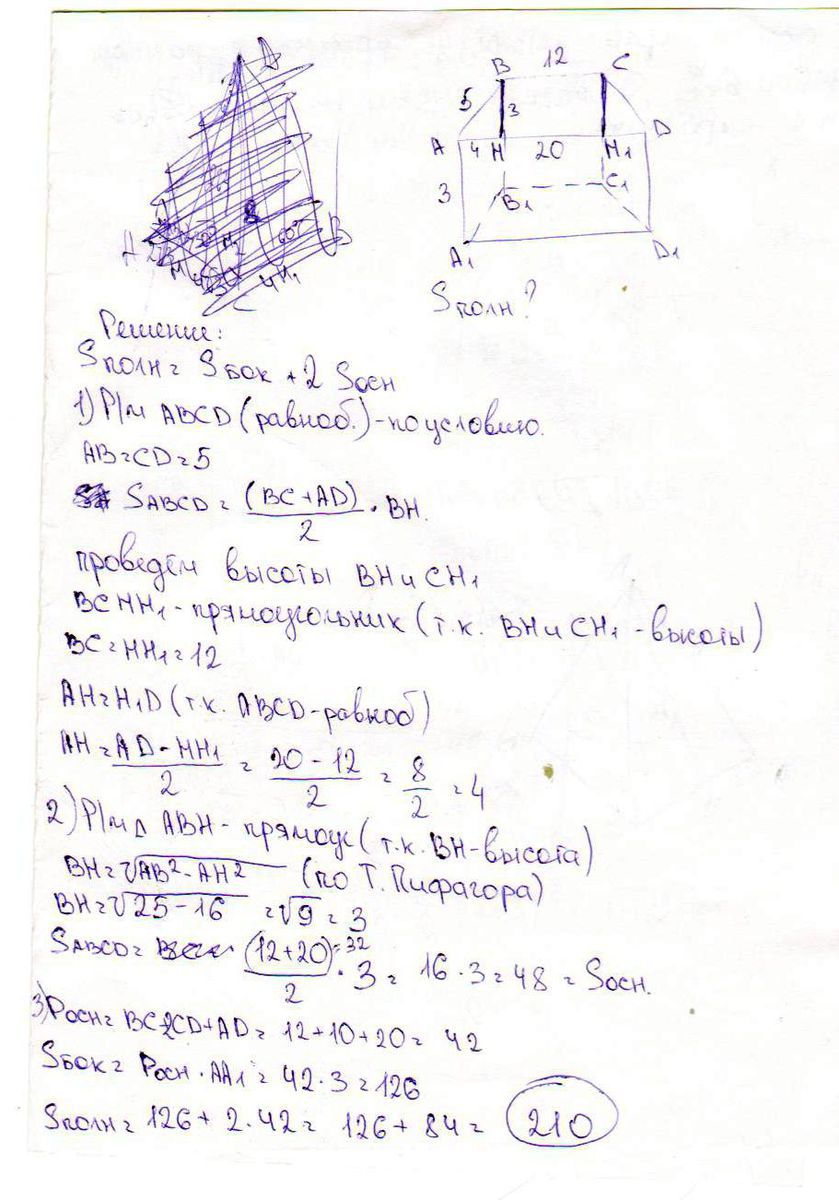 B 12 C
5 3
A 4 H 20 H₁ D
3
B₁ C₁
A₁ D₁
Sполн?
Решение:
Sполн = Sбок + 2 Sосн
1) Р/м ABCD (равноб.) - по условию.
AB = CD = 5
SABCD = (BC + AD)/2 · BH.
проведём высоты BH и CH₁
BCHH₁ - прямоугольник (т.к. BH и CH₁ - высоты)
BC = HH₁ = 12
AH = H₁D (т.к. ABCD - равноб)
AH = (AD - HH₁)/2 = (20 - 12)/2 = 8/2 = 4
2) Р/м △ ABH - прямоуг (т.к. BH - высота)
BH = √(AB² - AH²) (по Т. Пифагора)
BH = √(25 - 16) = √9 = 3
SABCD = (12+20)/2 =32 · 3 = 16 · 3 = 48 = Sосн.
3) Pосн = BC+2CD+AD = 12+10+20 = 42
Sбок = Pосн · AA₁ = 42 · 3 = 126
Sполн = 126 + 2 · 42 = 126 + 84 = 210